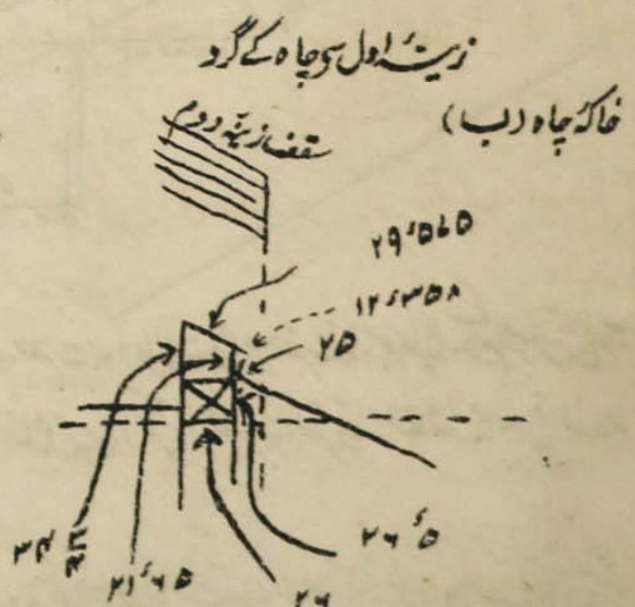 زینۂ اول سی چاہ کے گرد
خاکۂ چاہ (ب)
سقف زینہ دوم
۲۹٬۵۶۵
۱۲٬۳۵۸
۲۵
۲۶٬۵
۲۱٬۶۵
۲۶